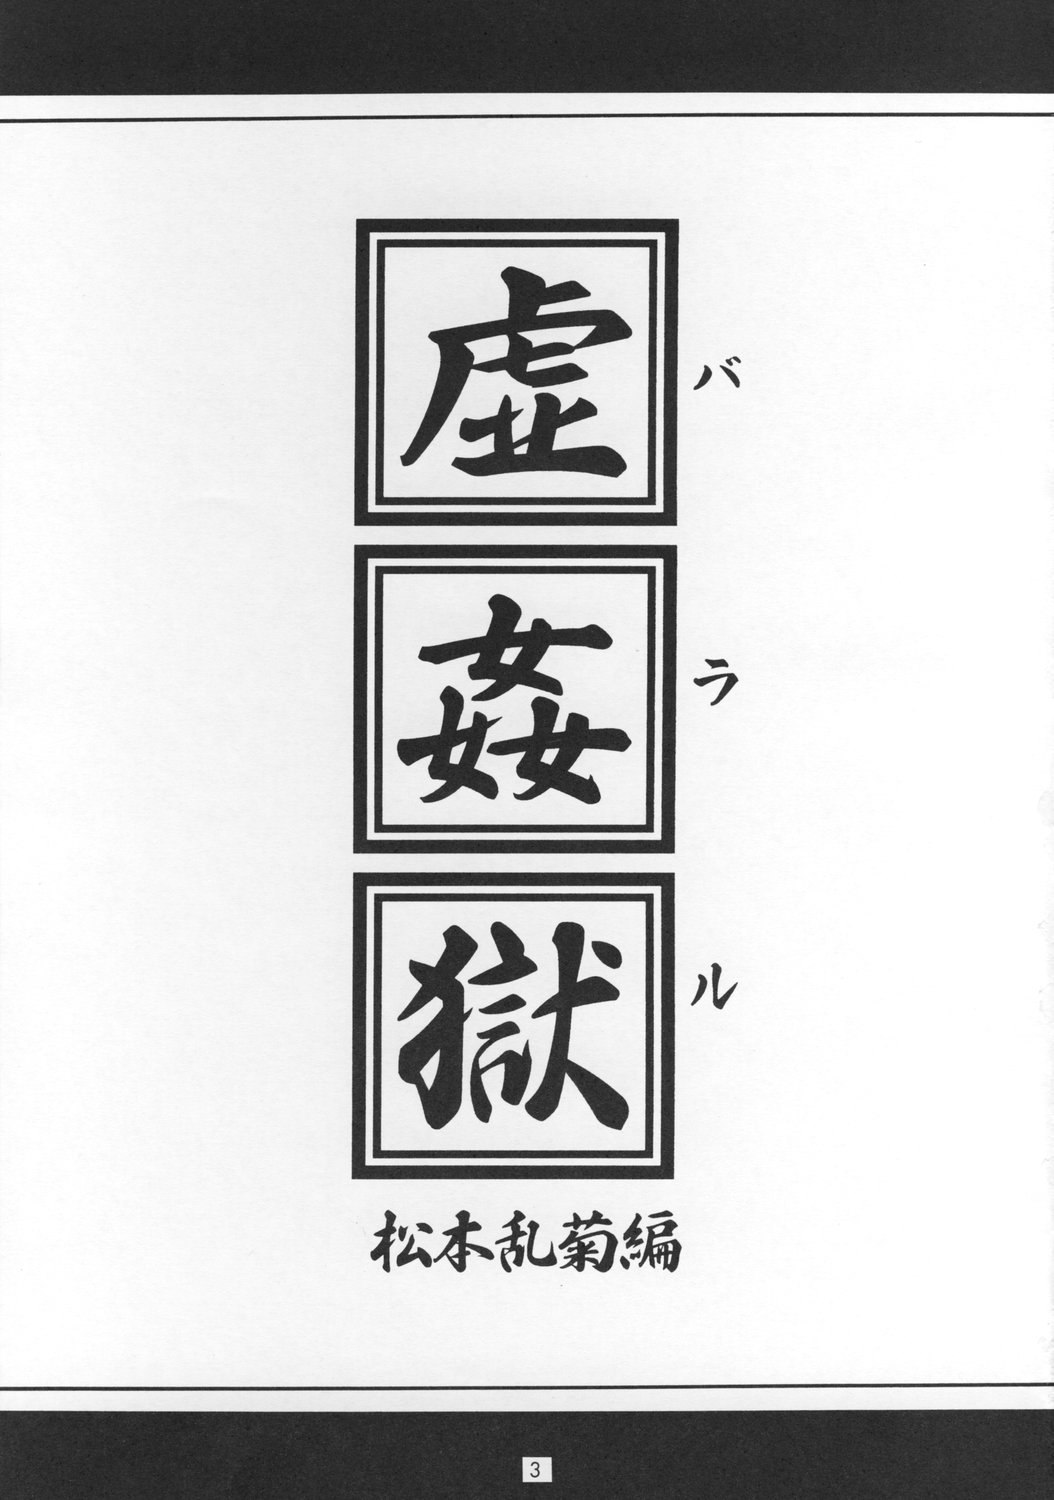 虚姦獄
バラル
松本乱菊編
3